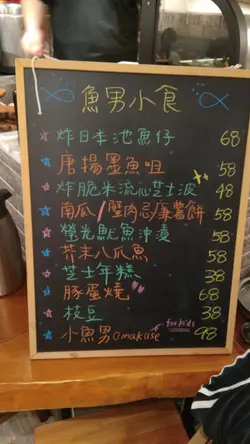 魚男小食
炸日本池魚仔 68
唐揚墨魚咀 58
炸脆米流心芝士波 x4 48
南瓜/蟹肉忌廉薯餅 58
螢光魷魚沖漬 58
芥末八爪魚 58
芝士年糕 38
豚蛋燒 68
枝豆 38
小魚男Omakase for kids 98